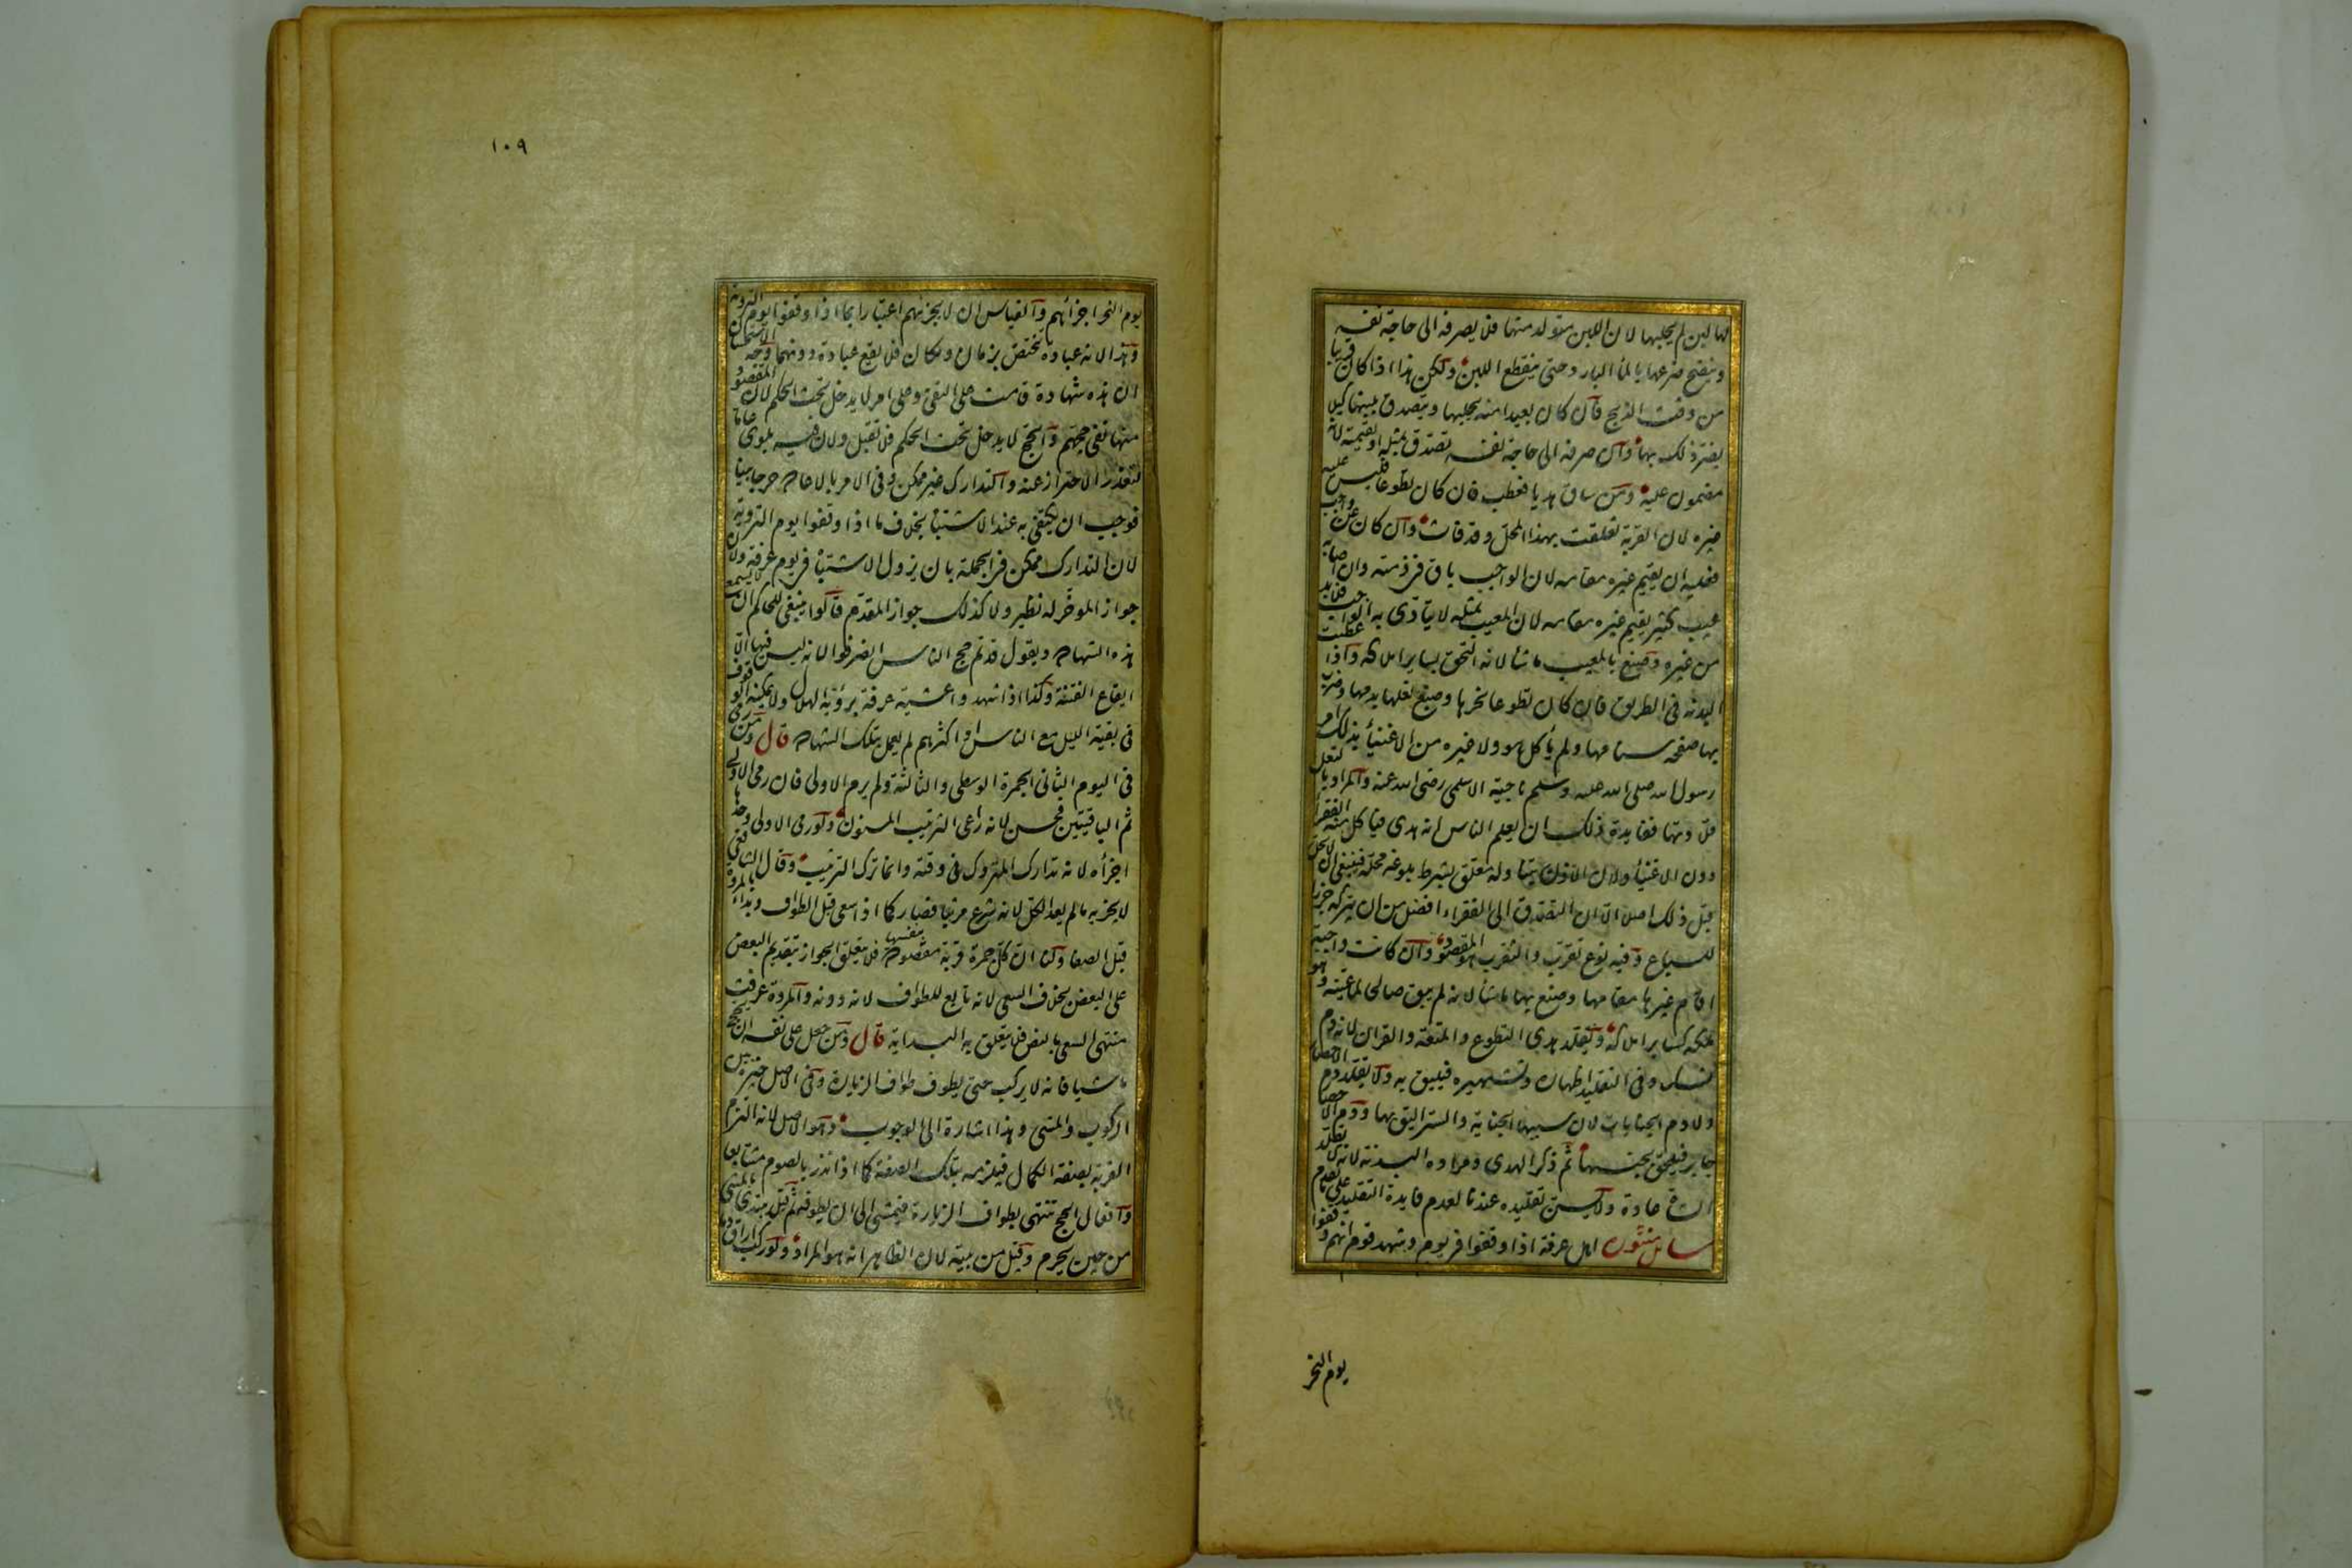 لها لبن لم يحلبها لان اللبن متولد منها فلا يصرفه الى حاجة نفسه
وينضح ضرعها بالماء البارد حتى ينقطع اللبن ولكن هذا اذا كان قريبا
من وقت الذبح فان كان بعيدا منه يحلبها ويتصدق بلبنها كيلا
يضر ذلك بها وان صرفه الى حاجة نفسه تصدق بمثله او بقيمته لانه
مضمون عليه ومن ساق هديا فعطب فان كان تطوعا فليس عليه
غيره لان القربة تعلقت بهذا المحل وقد فات وان كان عن واجب
فعليه ان يقيم غيره مقامه لان الواجب باق في ذمته وان اصابه
عيب كثير يقيم غيره مقامه لان المعيب بمثله لا يتادى به الواجب فلا بد
من غيره وصنع بالمعيب ما شاء لانه التحق بسائر املاكه واذا عطبت
البدنة في الطريق فان كان تطوعا نحرها وصبغ نعلها بدمها وضرب
بها صفحة سنامها ولم يأكل هو ولا غيره من الاغنياء بذلك امر
رسول الله صلى الله عليه وسلم ناجية الاسلمى رضى الله عنه والمراد بالنعل
قلادتها وفايدة ذلك ان يعلم الناس انه هدى فياكل منه الفقراء
دون الاغنياء ولان الاذن بتناوله معلق بشرط بلوغه محله فينبغى ان لا يحل
قبل ذلك اصلا الا ان التصدق الى الفقراء افضل من ان يتركه جزرا
للسباع وفيه نوع تقرب والتقرب هو المقصود وان كانت واجبة
اقام غيرها مقامها وصنع بها ما شاء لانه لم يبق صالحا لما عينه وهو
ملكه كسائر املاكه ويقلد هدى التطوع والمتعة والقران لانه دم
نسك وفى التقليد اظهاره وتشهيره فيليق به ولا يقلد دم الاحصار
ولا دم الجنايات لان سببها الجناية والستر اليق بها ودم الاحصار
جابر فيلحق بجنسها ثم ذكر الهدى ومراده البدنة لانه لا يقلد
الشاة عادة ولا يسن تقليده عندنا لعدم فايدة التقليد على ما تقدم
مسايل منثورة اهل عرفة اذا وقفوا في يوم وشهد قوم انهم وقفوا
يوم النحر
١٠٩
يوم النحر اجزأهم والقياس ان لا يجزئهم اعتبارا بما اذا وقفوا يوم التروية
وهذا لانه عبادة تختص بزمان ومكان فلا يقع عبادة دونهما وجه الاستحسان
ان هذه شهادة قامت على النفى وعلى امر لا يدخل تحت الحكم لان المقصود
منها نفى حجهم والحج لا يدخل تحت الحكم فلا تقبل ولان فيه بلوى عاما
لتعذر الاحتراز عنه والتدارك غير ممكن وفى الامر بالاعادة حرج بين
فوجب ان يكتفى به عند الاشتباه بخلاف ما اذا وقفوا يوم التروية
لان التدارك ممكن في الجملة بان يزول الاشتباه في يوم عرفة ولان
جواز المؤخر له نظير ولا كذلك جواز المقدم قالوا ينبغى للحاكم ان لا يسمع
هذه الشهادة ويقول قد تم حج الناس انصرفوا لانه ليس فيها الا
ايقاع الفتنة وكذا اذا شهدوا عشية عرفة برؤية الهلال ولا يمكنه الوقوف
فى بقية الليل مع الناس او اكثرهم لم يعمل بتلك الشهادة قال ومن رمى
فى اليوم الثانى الجمرة الوسطى والثالثة ولم يرم الاولى فان رمى الاولى
ثم الباقيتين فحسن لانه راعى الترتيب المسنون ولو رمى الاولى وحدها
اجزأه لانه تدارك المتروك فى وقته وانما ترك الترتيب وقال الشافعى
لا يجزيه ما لم يعد الكل لانه شرع مرتبا فصار كما اذا سعى قبل الطواف وبدأ بالمروة
قبل الصفا ولنا ان كل جمرة قربة مقصودة بنفسها فلا يتعلق الجواز بتقديم البعض
على البعض بخلاف السعى لانه تابع للطواف لانه دونه والمروة عرفت
منتهى السعى بالنص فلا يتعلق به البداية قال ومن جعل على نفسه ان يحج
ماشيا فانه لا يركب حتى يطوف طواف الزيارة وفى الاصل خيره بين
الركوب والمشى وهذا اشارة الى الوجوب وهو الاصل لانه التزم
القربة بصفة الكمال فيلزمه بتلك الصفة كما اذا نذر بالصوم متتابعا
وافعال الحج تنتهى بطواف الزيارة فيمشى الى ان يطوفه ثم قيل يبتدى بالمشى
من حين يحرم وقيل من بيته لان الظاهر انه هو المراد ولو ركب اراق دما